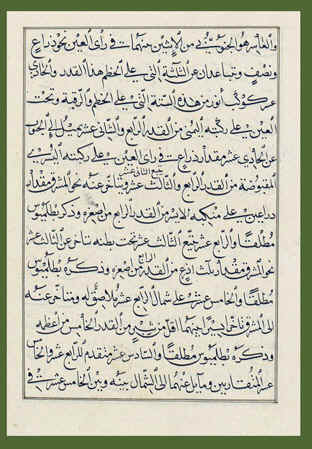 والعاشر هو الجنوبي من الاثنين بينهما في رأى العين نحو ذراع
ونصف وتباعدان عن الثالثة التي على الخطم هذا القدر والحادي
عشر كوكب أنور من هذه الستة التي على الخطم والرقبة وتحت
العين على ركبته اليمنى من القدر الرابع والثاني عشر يميل الى الجنوب
عن الحادي عشر مقدار ذراع في رأى العين على ركبته اليسرى
المقبوضة من القدر الرابع والثالث عشر يتأخر عنه نحو المشرق مقدار
ذراعين على منكبه الايسر من القدر الرابع من أصغره وذكره بطلميوس
مطلقا والرابع عشر يتبع الثالث عشر تحت بطنه تأخر عن الثالث عشر
نحو المشرق مقدار ثلث اذرع من القدر الرابع من أصغره وذكره بطلميوس
مطلقا والخامس عشر على شمال الرابع عشر له ومتأخر عنه
الى المشرق تأخرا يسيرا بينهما اقل من شبر من القدر الخامس من أعظمه
وذكره بطلميوس مطلقا والسادس عشر متقدم للرابع عشر والخامس
عشر المتقاربين ومايل عنهما الى الشمال بينه وبين الخامس عشر في